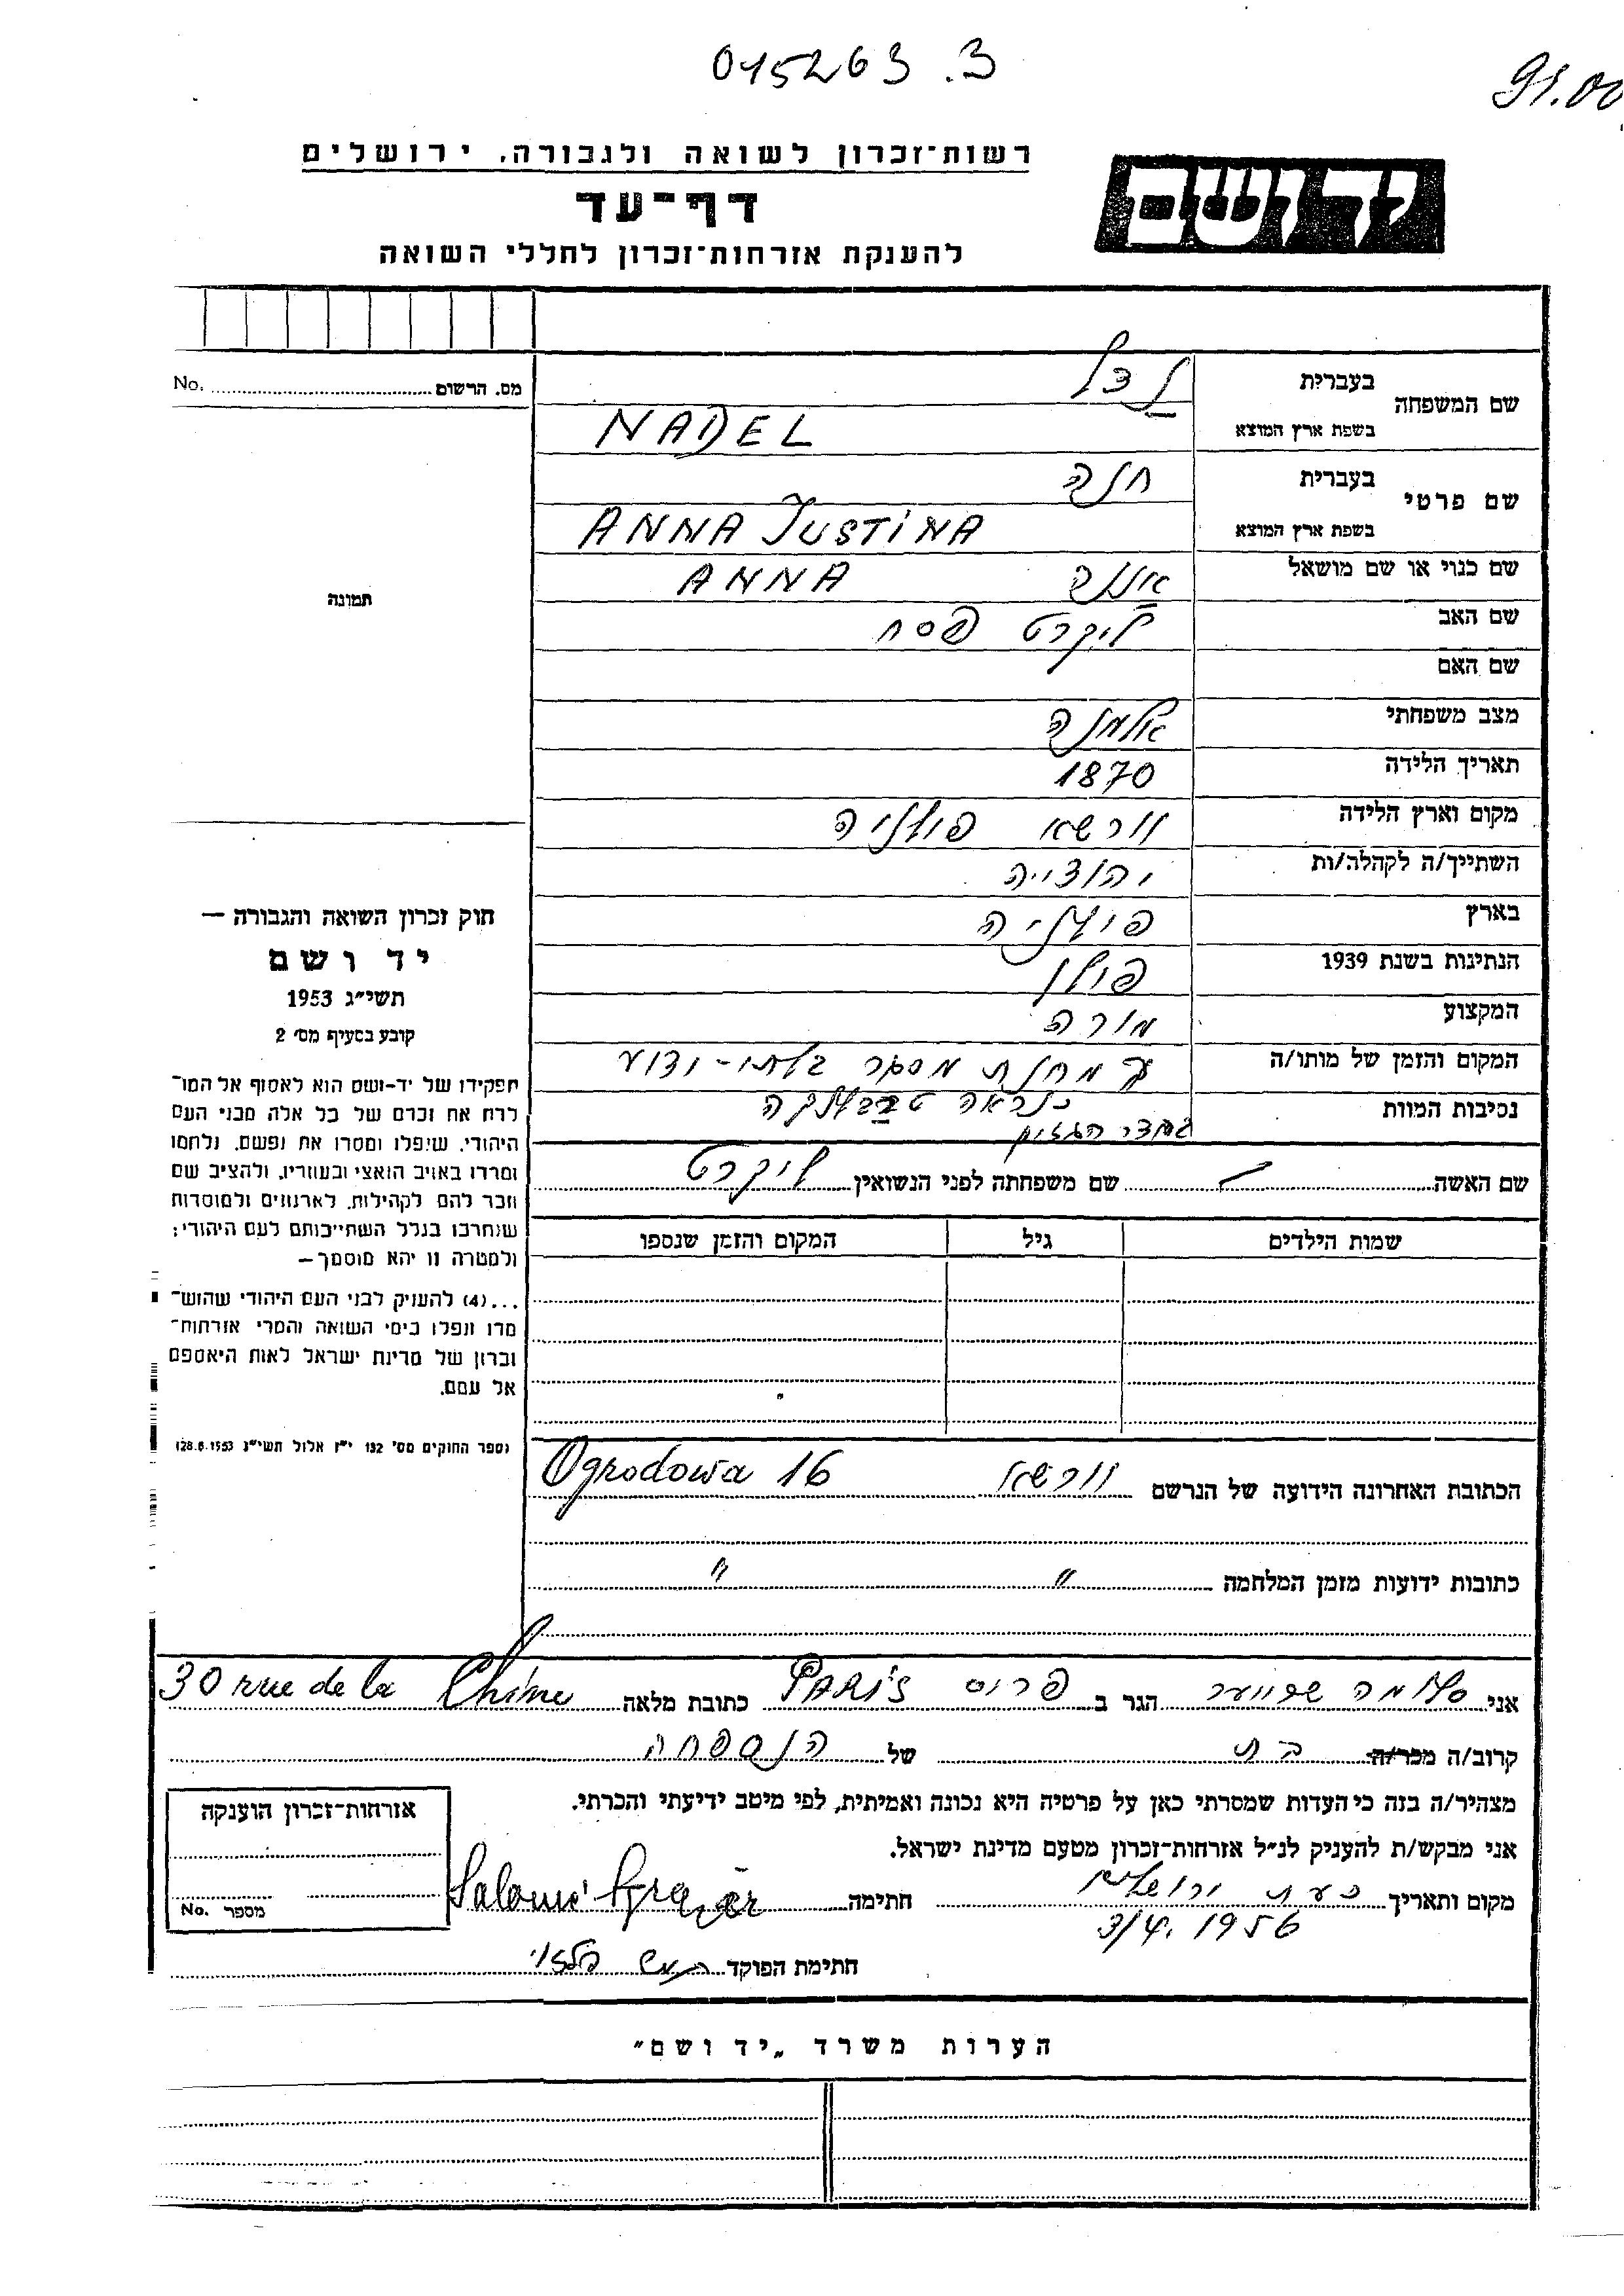 015263 .3
91.00
יד ושם
רשות־זכרון לשואה ולגבורה, ירושלים
דף־עד
להענקת אזרחות־זכרון לחללי השואה
מס. הרשום No.
שם המשפחה
בעברית נדל
בשפת ארץ המוצא NADEL
שם פרטי
בעברית חנה
בשפת ארץ המוצא ANNA JUSTINA
שם כנוי או שם מושאל אננה ANNA
שם האב ליקרט פסח
שם האם
מצב משפחתי אלמנה
תאריך הלידה 1870
מקום וארץ הלידה וורשא פולניה
השתייך/ה לקהלה/ות יהודייה
בארץ פולניה
הנתינות בשנת 1939 פולן
המקצוע מורה
המקום והזמן של מותו/ה מחנת מסגר בלתי־ידוע
נסיבות המוות כנראה טרבלינקה
בחדר הגזים
שם האשה שם משפחתה לפני הנשואין ליקרט
שמות הילדים גיל המקום והזמן שנספו
תמונה
חוק זכרון השואה והגבורה —
יד ושם
תשי״ג 1953
קובע בסעיף מס׳ 2
תפקידו של יד-ושם הוא לאסוף אל המו־
לדת את זכרם של כל אלה מבני העם
היהודי, שיפלו ומסרו את נפשם, נלחמו
ומרדו באויב הנאצי ובעוזריו, ולהציב שם
וזכר להם לקהילות, לארגונים ולמוסדות
שנחרבו בגלל השתייכותם לעם היהודי;
ולמטרה זו יהא מוסמך—
...(4) להעניק לבני העם היהודי שהוש־
מדו ונפלו בימי השואה והמרי אזרחות־
זכרון של מדינת ישראל לאות היאספם
אל עמם.
(ספר החוקים מס׳ 132 י״ז אלול תשי״ג 28.8.1953)
הכתובת האחרונה הידועה של הנרשם וורשא Ogrodowa 16
כתובות ידועות מזמן המלחמה " "
אני סלומה הגר ב פריס PARIS כתובת מלאה 30 rue de la Chine
קרוב/ה מכר/ה בת של הנספחה
מצהיר/ה בזה כי העדות שמסרתי כאן על פרטיה היא נכונה ואמיתית, לפי מיטב ידיעתי והכרתי.
אני מבקש/ת להעניק לנ״ל אזרחות־זכרון מטעם מדינת ישראל.
מקום ותאריך כעת ירושלים חתימה Salomé
3/4. 1956
חתימת הפוקד
אזרחות־זכרון הוענקה
מספר No.
הערות משרד „יד ושם"